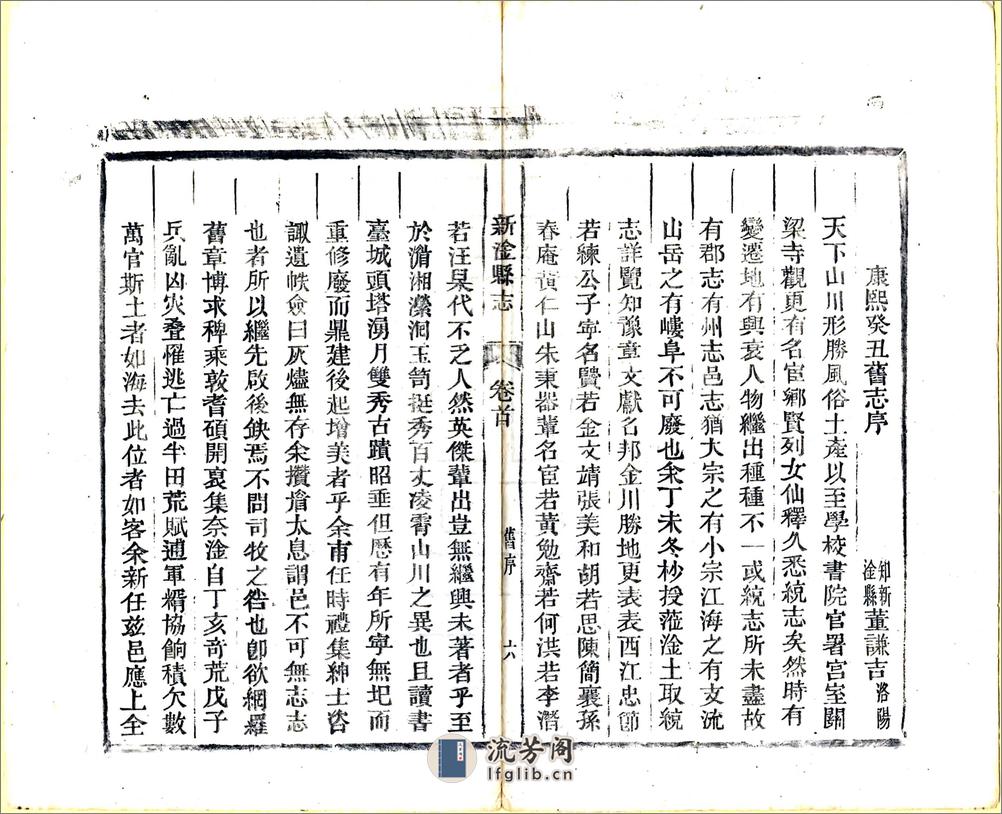 康熙癸丑舊志序
知新淦縣董謙吉洛陽
天下山川形勝風俗土產以至學校書院官署宮室關
梁寺觀更有名宦鄉賢列女仙釋久悉統志矣然時有
變遷地有興衰人物繼出種種不一或統志所未盡故
有郡志有州志邑志猶大宗之有小宗江海之有支流
山岳之有嶁阜不可廢也余丁未冬杪授蒞淦土取統
志詳覽知豫章文獻名邦金川勝地更表表西江忠節
若練公子寧名賢若金文靖張美和胡若思陳簡襄孫
春庵黃仁山朱秉器輩名宦若黃勉齋若何洪若李潛
新淦縣志
卷首
舊序
六
若汪杲代不乏人然英傑輩出豈無繼興未著者乎至
於淯湘瀠洄玉笥挺秀百丈凌霄山川之異也且讀書
臺城頭塔湧月雙秀古蹟昭垂但歷有年所寧無圮而
重修廢而鼎建後起增美者乎余甫任時禮集紳士咨
諏遺帙僉曰灰燼無存余攢擔太息謂邑不可無志志
也者所以繼先啟後鈌焉不問司牧之咎也卽欲網羅
舊章博求稗乘敦耆碩開裒集奈淦自丁亥奇荒戊子
兵亂凶灾叠罹逃亡過半田荒賦逋軍糈協餉積欠數
萬官斯土者如海去此位者如客余新任兹邑應上全
流芳阁
lfglib.cn